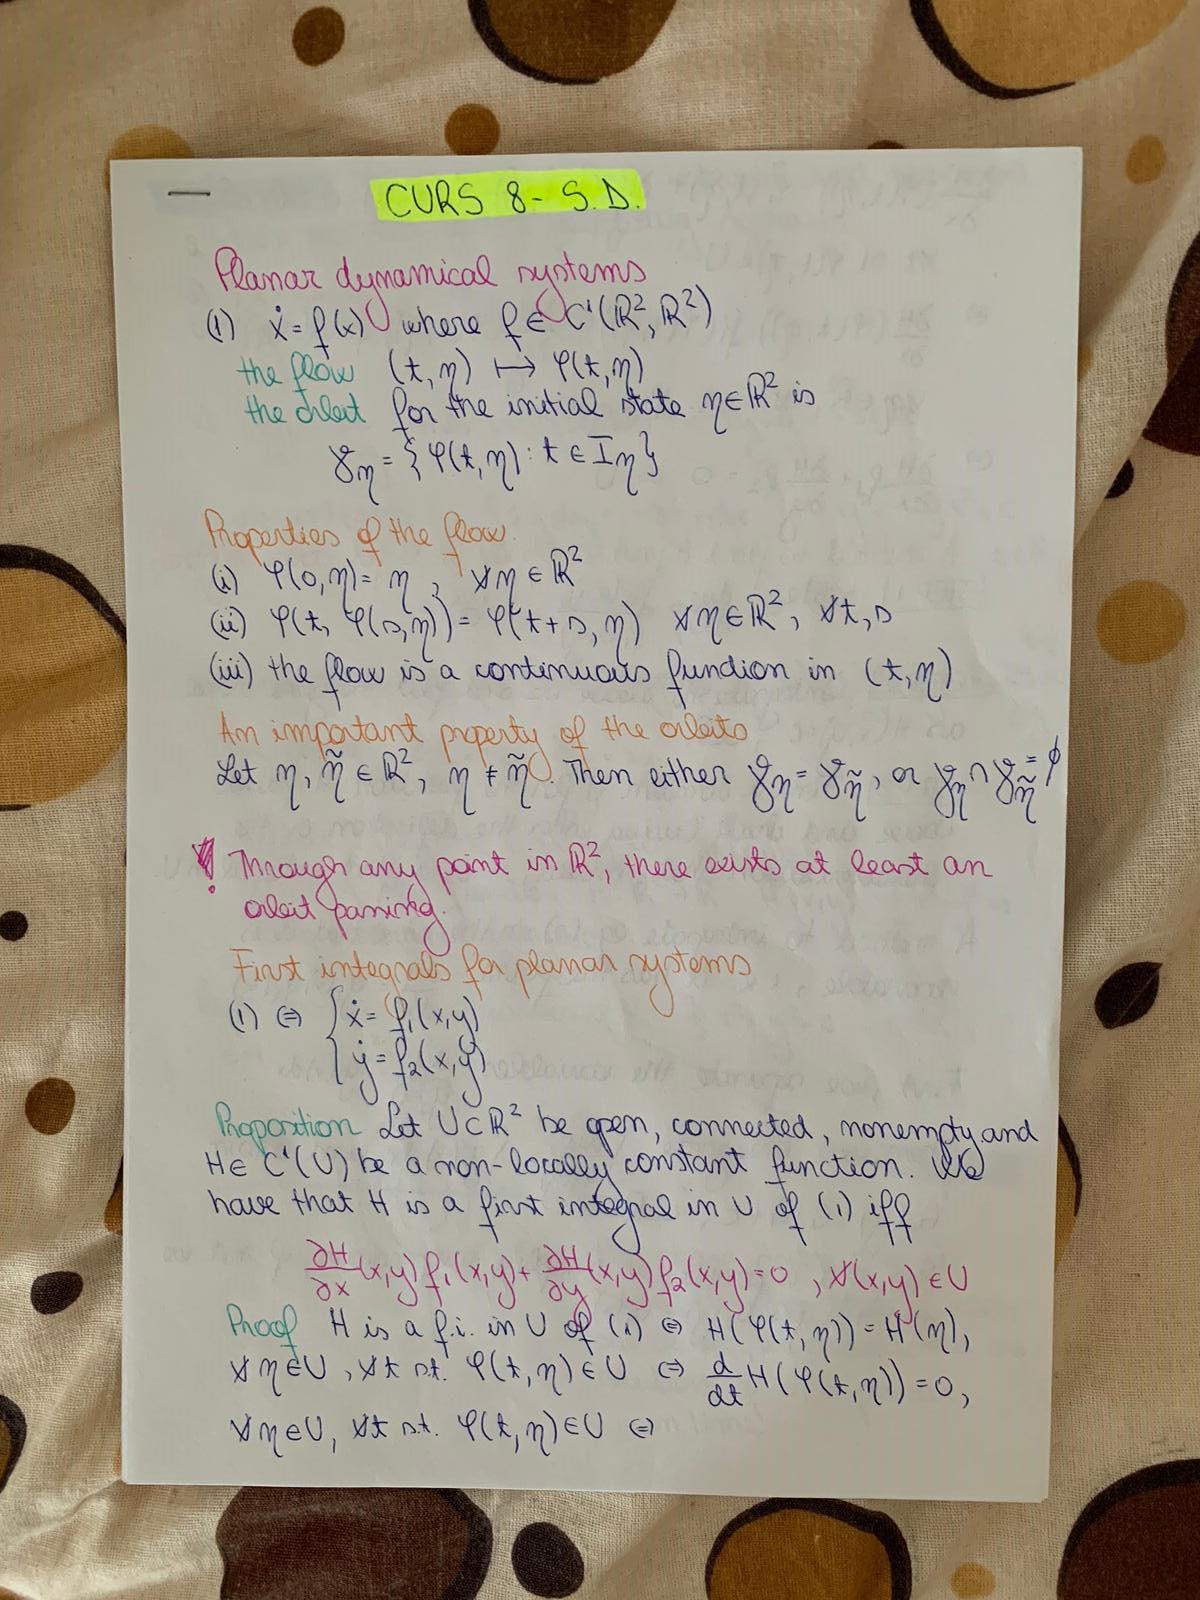 CURS 8 - S.D.
Planar dynamical systems
(1) ẋ = f(x) where f ∈ C¹(ℝ², ℝ²)
the flow (t, η) ↦ φ(t, η)
the orbit for the initial state η ∈ ℝ² is
γη = {φ(t, η) : t ∈ Iη}
Properties of the flow.
(i) φ(0, η) = η, ∀η ∈ ℝ²
(ii) φ(t, φ(s, η)) = φ(t+s, η) ∀η ∈ ℝ², ∀t, s
(iii) the flow is a continuous function in (t, η)
An important property of the orbits
Let η, η̃ ∈ ℝ², η ≠ η̃. Then either γη = γη̃, or γη ∩ γη̃ = ∅
! Through any point in ℝ², there exists at least an
orbit passing.
First integrals for planar systems
(1) ⇔ { ẋ = f₁(x,y)
ẏ = f₂(x,y)
Proposition Let U ⊂ ℝ² be open, connected, nonempty and
H ∈ C¹(U) be a non-locally constant function. We
have that H is a first integral in U of (1) iff
∂H/∂x (x,y) f₁(x,y) + ∂H/∂y (x,y) f₂(x,y) = 0, ∀(x,y) ∈ U
Proof H is a f.i. in U of (1) ⇔ H(φ(t, η)) = H(η),
∀η ∈ U, ∀t s.t. φ(t, η) ∈ U ⇔ d/dt H(φ(t, η)) = 0,
∀η ∈ U, ∀t s.t. φ(t, η) ∈ U ⇔